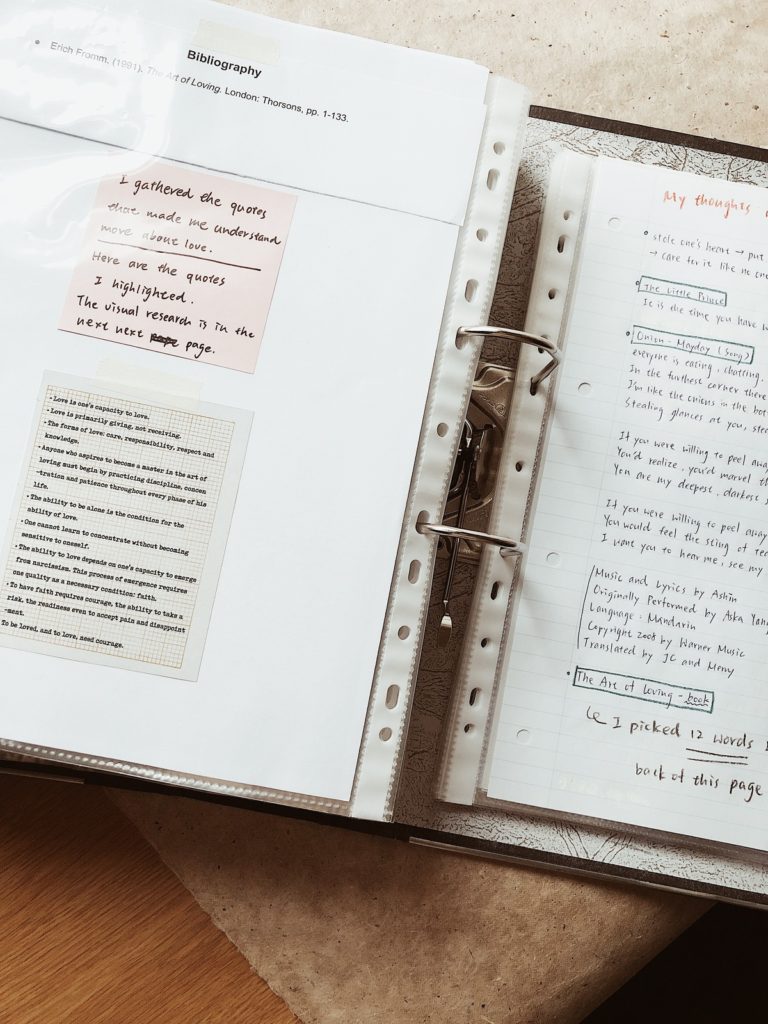 Bibliography
• Erich Fromm. (1991). The Art of Loving. London: Thorsons, pp. 1-133.
I gathered the quotes
that made me understand
move about love.
Here are the quotes
I highlighted.
The visual research is in the
next next page.
• Love is one's capacity to love.
• Love is primarily giving, not receiving.
• The forms of love: care, responsibility, respect and
knowledge.
• Anyone who aspires to become a master in the art of
loving must begin by practicing discipline, concen
-tration and patience throughout every phase of his
life.
• The ability to be alone is the condition for the
ability of love.
• One cannot learn to concentrate without becoming
sensitive to oneself.
• The ability to love depends on one's capacity to emerge
from narcissism. This process of emergence requires
one quality as a necessary condition: faith.
• To have faith requires courage, the ability to take a
risk, the readiness even to accept pain and disappoint
-ment.
To be loved, and to love, need courage.
My thoughts
• stole one's heart → put
→ care for it like no one
• The Little Prince
It is the time you have
• Onion - Mayday (song)
everyone is eating, chatting.
In the furthest corner there
I'm like the onions in the
Stealing glances at you,
If you were willing to peel away
You'd realize, you'd marvel
You are my deepest, darkest
If you were willing to peel away
You would feel the sting of
I want you to hear me, see my
Music and Lyrics by Ashin
Originally Performed by Aska
Language: Mandarin
Copyright 2008 by Warner Music
Translated by JC and Merry
• The Art of Loving - book
↳ I picked 12 words
back of this page